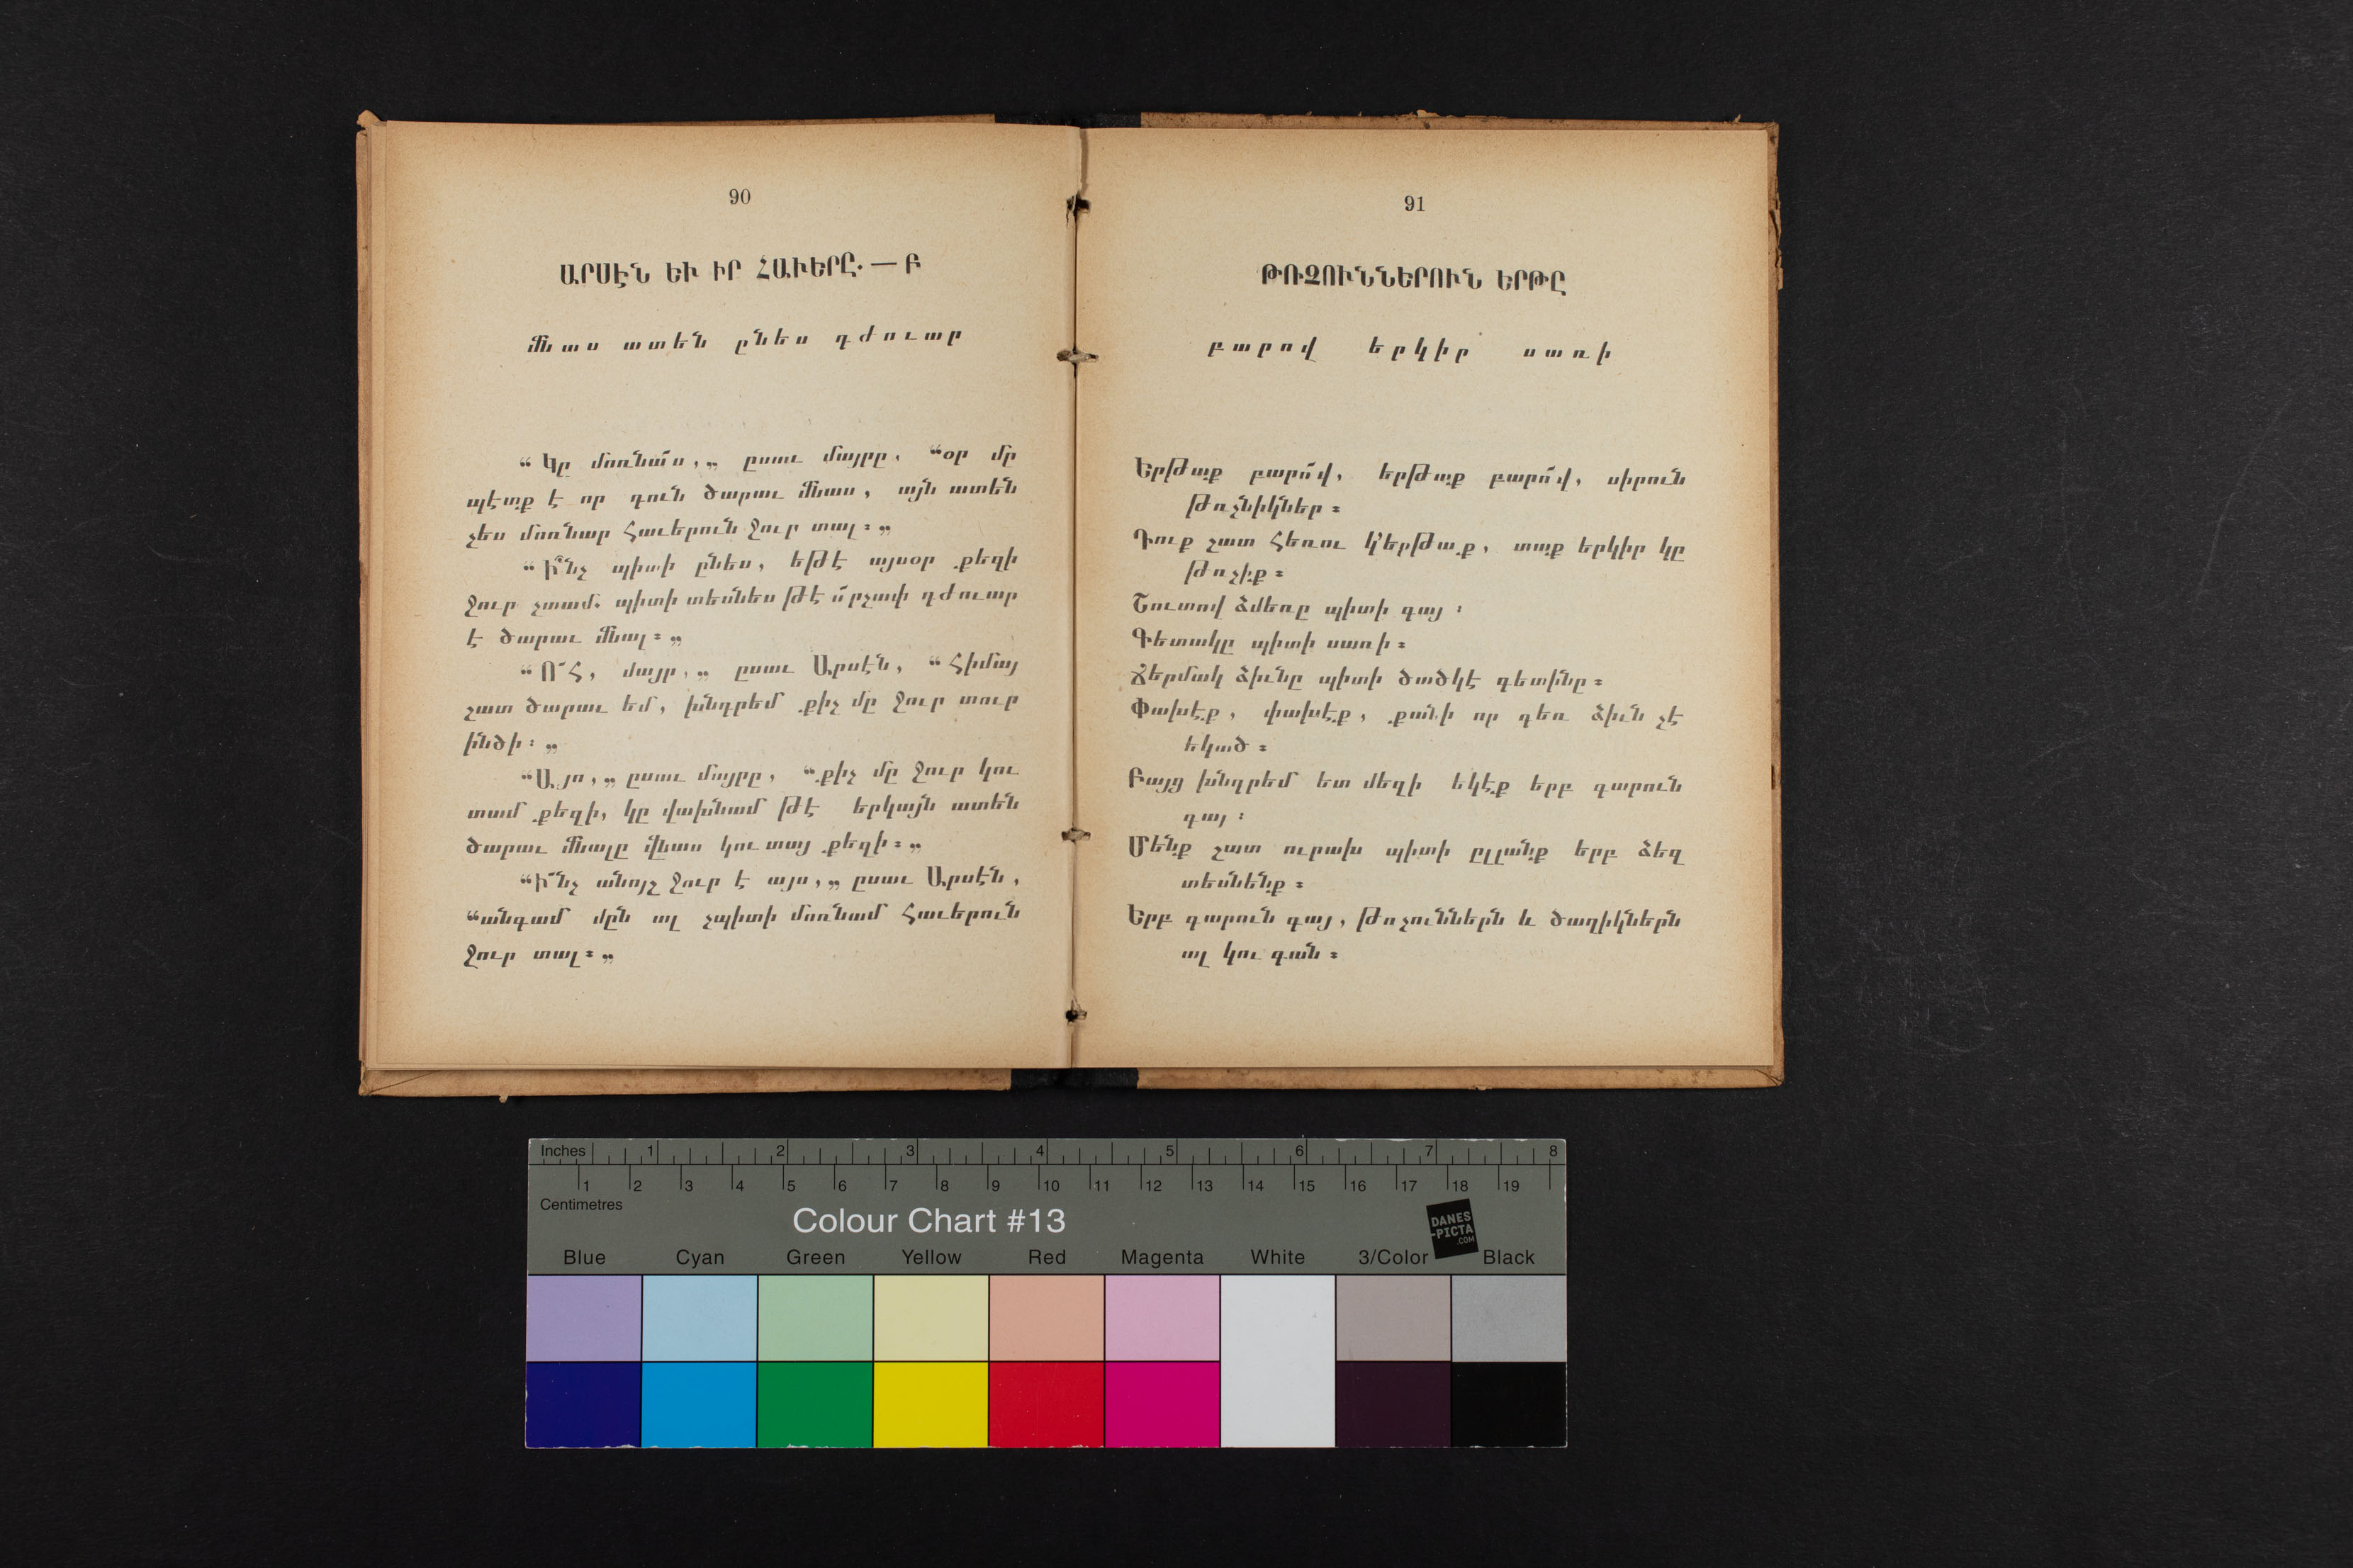 90
ԱՐՍԷՆ ԵՒ ԻՐ ՀԱՒԵՐԸ.— Բ
մնաս ատեն ընես դժուար
“ Կը մոռնա՞ս,„ ըսաւ մայրը, “օր մը
պէտք է որ դուն ծարաւ մնաս, այն ատեն
չես մոռնար հաւերուն ջուր տալ։„
“ Ի՞նչ պիտի ընես, եթէ այսօր քեզի
ջուր չտամ. պիտի տեսնես թէ ո՛րչափ դժուար
է ծարաւ մնալ։„
“ Ո՜Հ, մայր,„ ըսաւ Արսէն, “ հիմայ
շատ ծարաւ եմ, խնդրեմ քիչ մը ջուր տուր
ինծի։„
“Այո,„ ըսաւ մայրը, “քիչ մը ջուր կու
տամ քեզի, կը վախնամ թէ երկայն ատեն
ծարաւ մնալը վնաս կու տայ քեզի։„
“Ի՜նչ անոյշ ջուր է այս,„ ըսաւ Արսէն,
“անգամ մըն ալ չպիտի մոռնամ հաւերուն
ջուր տալ։„
91
ԹՌՉՈՒՆՆԵՐՈՒՆ ԵՐԹԸ
բարով երկիր սառի
Երթաք բարո՜վ, երթաք բարո՜վ, սիրուն
թռչնիկներ։
Դուք շատ հեռու կ’երթաք, տաք երկիր կը
թռչիք։
Շուտով ձմեռը պիտի գայ։
Գետակը պիտի սառի։
Ճերմակ ձիւնը պիտի ծածկէ գետինը։
Փախէք, փախէք, քանի որ դեռ ձիւն չէ
եկած։
Բայց խնդրեմ ետ մեզի եկէք երբ գարուն
գայ։
Մենք շատ ուրախ պիտի ըլլանք երբ ձեզ
տեսնենք։
Երբ գարուն գայ, թռչուններն և ծաղիկներն
ալ կու գան։
Inches 1 2 3 4 5 6 7 8
1 2 3 4 5 6 7 8 9 10 11 12 13 14 15 16 17 18 19
Centimetres
Colour Chart #13
DANES
-PICTA
.COM
Blue Cyan Green Yellow Red Magenta White 3/Color Black